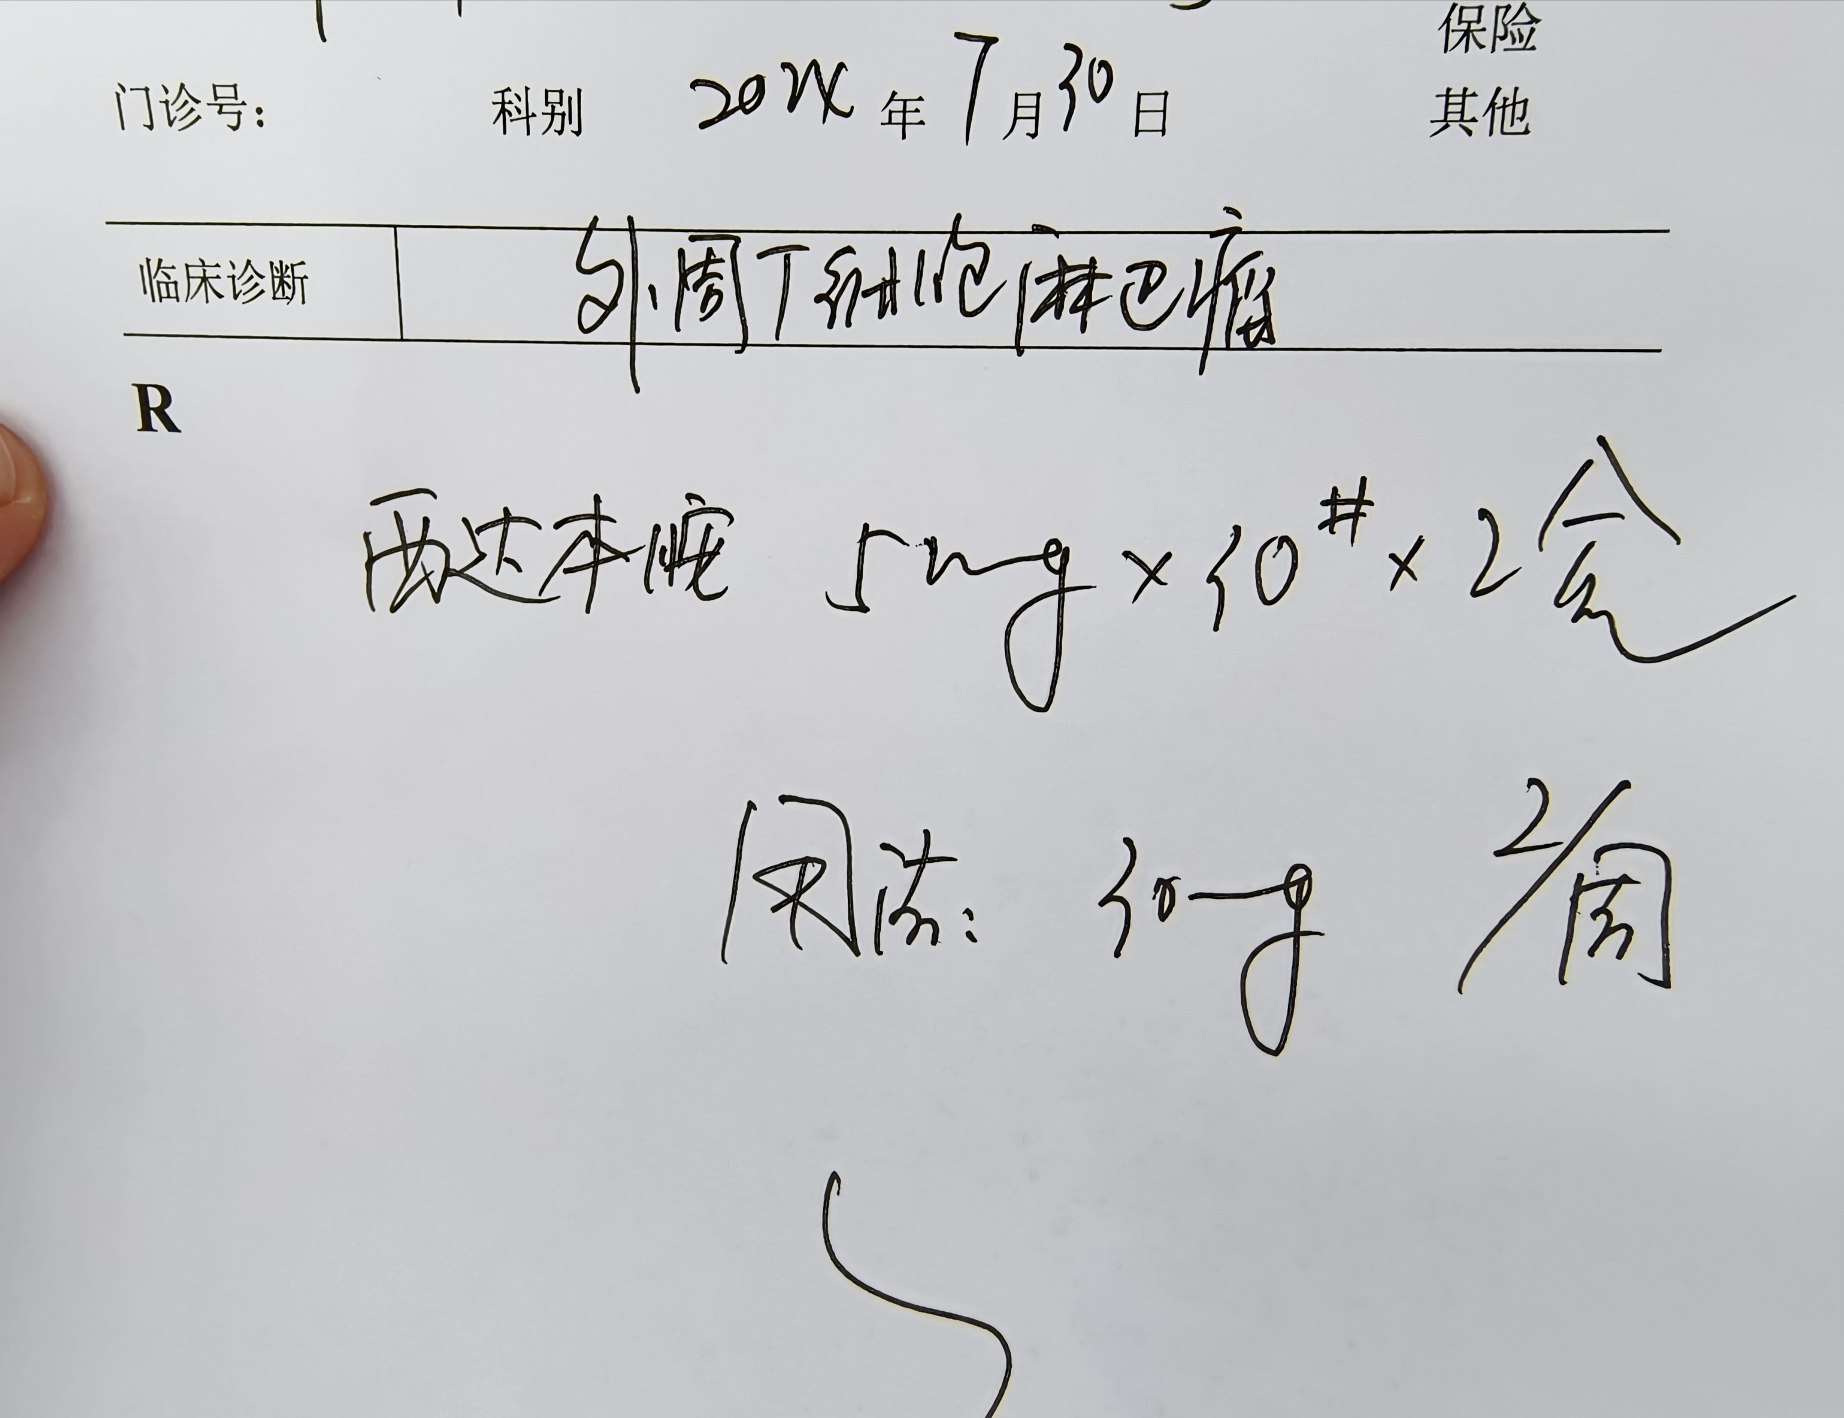 保险
门诊号: 科别 2024 年 7 月 30 日 其他
临床诊断 外周T细胞淋巴瘤
R
西达本胺 5mg × 30# × 2盒
用法: 30mg 2/周